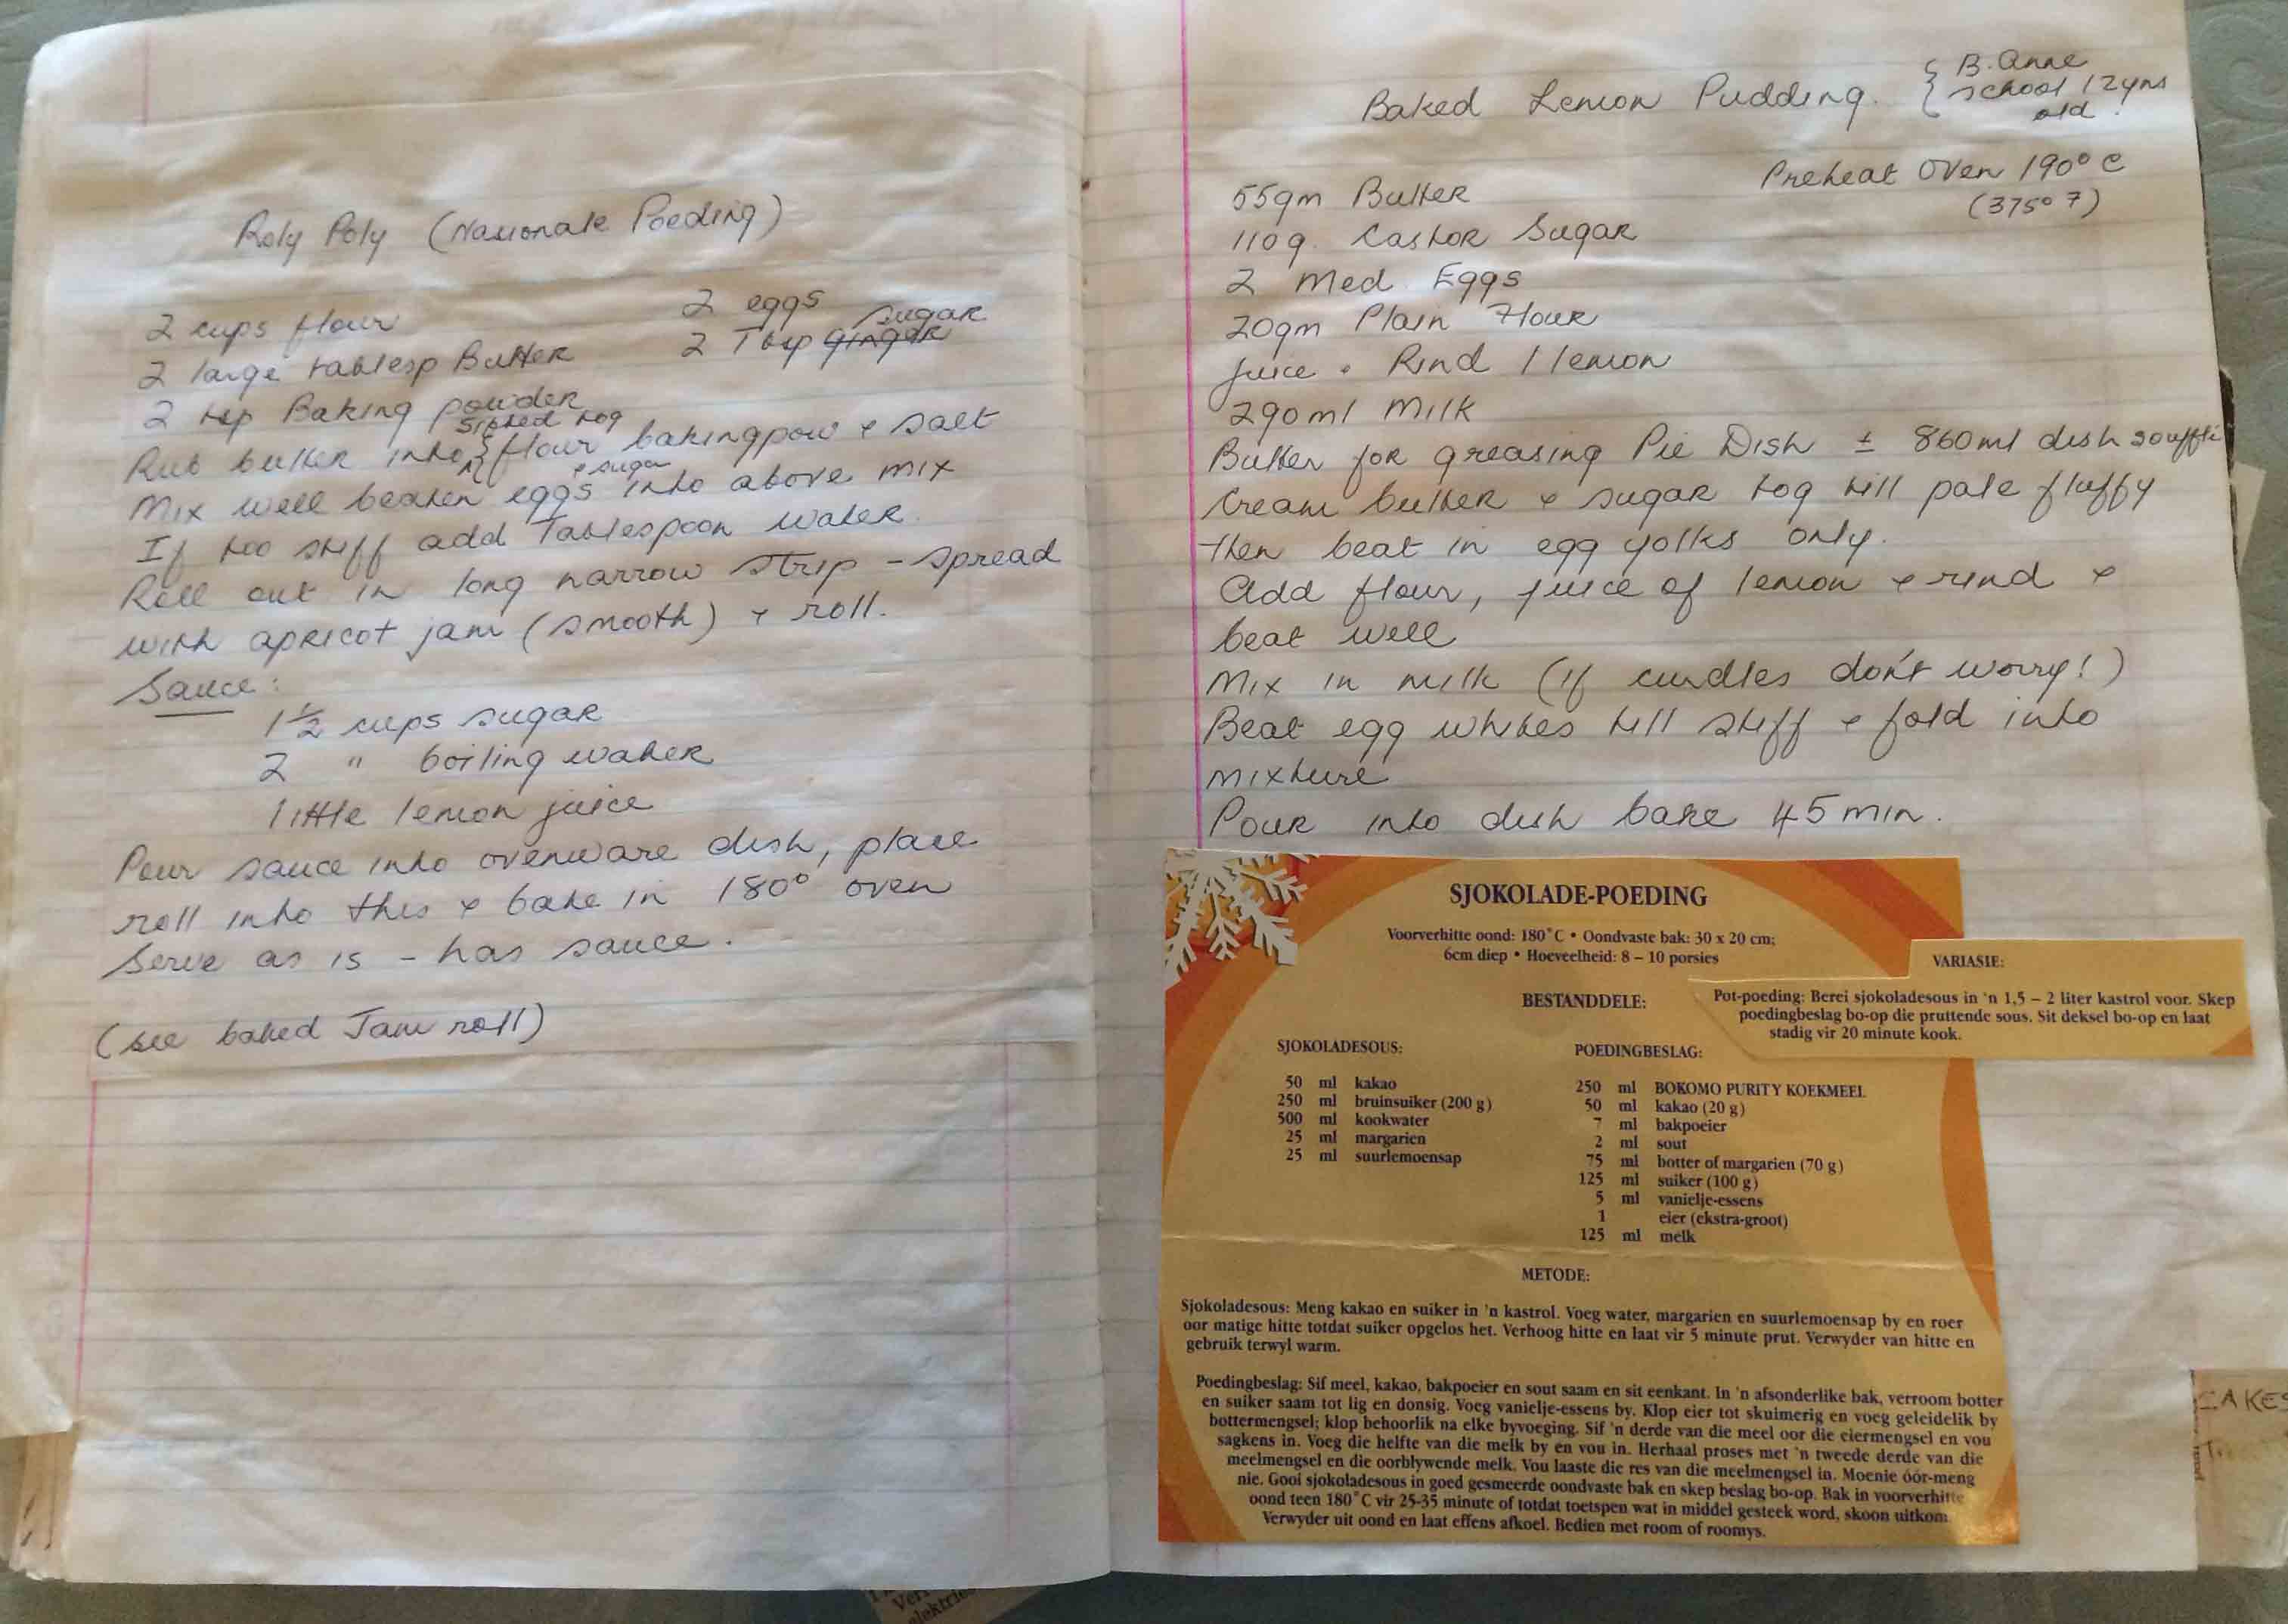 Roly Poly (Nasionale Poeding)
2 cups flour
2 large tablesp Butter
2 tsp Baking powder
2 eggs
sugar
2 Tbsp ginger
sifted tog
Rub butter into flour bakingpow & salt
& sugar
Mix well beaten eggs into above mix
If too stiff add Tablespoon water.
Roll out in long narrow strip – spread
with apricot jam (smooth) & roll.
Sauce:
1½ cups sugar
2 " boiling water
little lemon juice
Pour sauce into ovenware dish, place
roll into this & bake in 180° oven
Serve as is – has sauce.
(see baked Jam roll)
Baked Lemon Pudding. { B. Anne
school 12yrs
old.
Preheat Oven 190° C
(375° F)
55gm Butter
110g. Castor Sugar
2 Med. Eggs
20gm Plain Flour
Juice & Rind 1 lemon
290ml Milk
Butter for greasing Pie Dish ± 860ml dish souffle
Cream butter & sugar tog till pale fluffy
then beat in egg yolks only.
Add flour, juice of lemon & rind &
beat well
Mix in milk (if curdles don't worry!)
Beat egg whites till stiff & fold into
mixture
Pour into dish bake 45 min.
SJOKOLADE-POEDING
Voorverhitte oond: 180°C • Oondvaste bak: 30 x 20 cm;
6cm diep • Hoeveelheid: 8 – 10 porsies
VARIASIE:
Pot-poeding: Berei sjokoladesous in 'n 1,5 – 2 liter kastrol voor. Skep
poedingbeslag bo-op die pruttende sous. Sit deksel bo-op en laat
stadig vir 20 minute kook.
BESTANDDELE:
SJOKOLADESOUS:
50 ml kakao
250 ml bruinsuiker (200 g)
500 ml kookwater
25 ml margarien
25 ml suurlemoensap
POEDINGBESLAG:
250 ml BOKOMO PURITY KOEKMEEL
50 ml kakao (20 g)
7 ml bakpoeier
2 ml sout
75 ml botter of margarien (70 g)
125 ml suiker (100 g)
5 ml vanielje-essens
1 eier (ekstra-groot)
125 ml melk
METODE:
Sjokoladesous: Meng kakao en suiker in 'n kastrol. Voeg water, margarien en suurlemoensap by en roer
oor matige hitte totdat suiker opgelos het. Verhoog hitte en laat vir 5 minute prut. Verwyder van hitte en
gebruik terwyl warm.
Poedingbeslag: Sif meel, kakao, bakpoeier en sout saam en sit eenkant. In 'n afsonderlike bak, verroom botter
en suiker saam tot lig en donsig. Voeg vanielje-essens by. Klop eier tot skuimerig en voeg geleidelik by
bottermengsel; klop behoorlik na elke byvoeging. Sif 'n derde van die meel oor die eiermengsel en vou
sagkens in. Voeg die helfte van die melk by en vou in. Herhaal proses met 'n tweede derde van die
meelmengsel en die oorblywende melk. Vou laaste die res van die meelmengsel in. Moenie óór-meng
nie. Gooi sjokoladesous in goed gesmeerde oondvaste bak en skep beslag bo-op. Bak in voorverhitte
oond teen 180°C vir 25-35 minute of totdat toetspen wat in middel gesteek word, skoon uitkom.
Verwyder uit oond en laat effens afkoel. Bedien met room of roomys.
CAKES